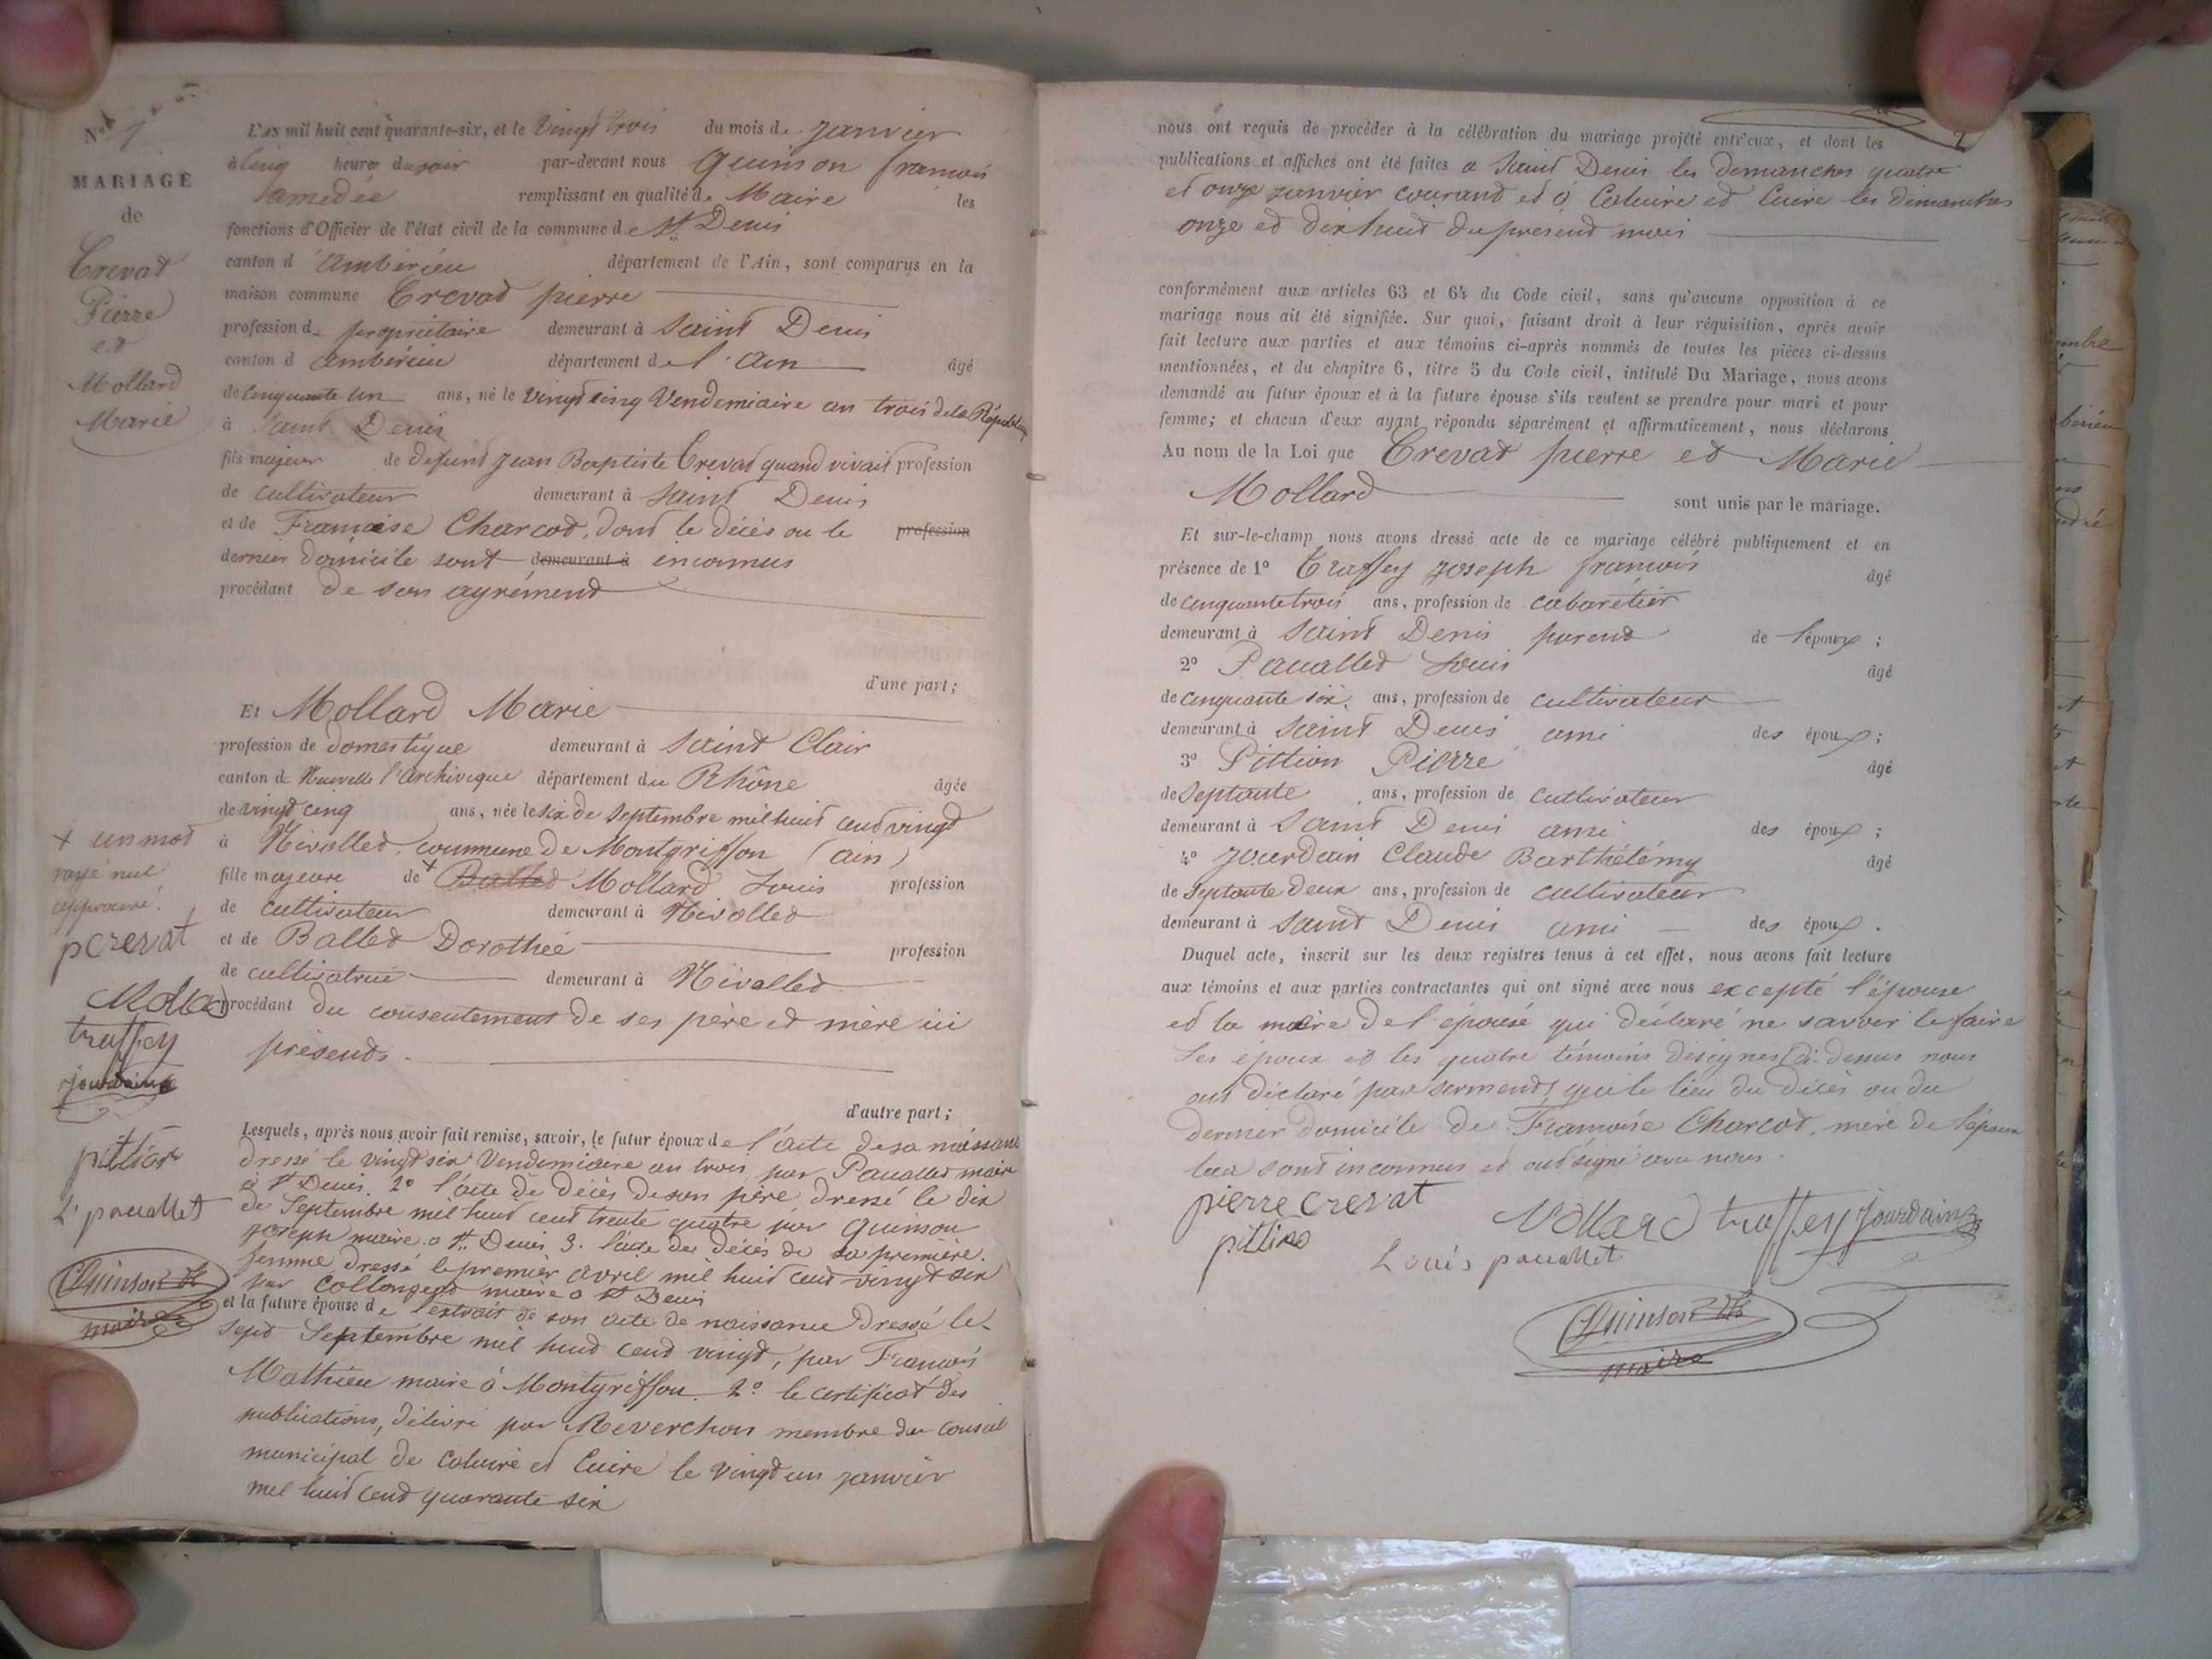 N° 1
MARIAGE
de
Crevat
Pierre
et
Mollard
Marie
L'AN mil huit cent quarante-six, et le Vingt trois du mois de Janvier
à Cinq heures du soir par-devant nous Quinson françois
amedée remplissant en qualité de Maire les
fonctions d'Officier de l'état civil de la commune de St Denis
canton d'ambérieu département de l'Ain, sont comparus en la
maison commune Crevat pierre
profession de propriétaire demeurant à Saint Denis
canton d'ambérieu département de l'Ain âgé
de Cinquante un ans, né le vingt cinq Vendemiaire an trois de la République
à Saint Denis
fils majeur de defunt Jean Baptiste Crevat quand vivait profession
de cultivateur demeurant à Saint Denis
et de Françoise Charcot, dont le décès ou le profession
dernier domicile sont demeurant à inconnus
procédant de son agrément
d'une part;
Et Mollard Marie
profession de domestique demeurant à Saint Clair
canton de Neuville l'archiveque département du Rhône âgée
de vingt cinq ans, née le six de Septembre mil huit cent vingt
à Nivolled, commune de Montgriffon (ain)
fille majeure de + Balled Mollard Louis profession
de cultivateur demeurant à Nivolled
et de Balled Dorothée profession
de cultivatrice demeurant à Nivolled
procédant du consentement de ses père et mère ici
présents.
d'autre part;
+ un mot
rayé nul
approuvé.
p crevat
Mollard
traffey
jourdain
pittion
L. pauallet
Quinson
maire
Lesquels, après nous avoir fait remise, savoir, le futur époux de l'acte de sa naissance
dressé le vingt six Vendemiaire an trois par Pauallet maire
à St Denis. 2° l'acte de décès de son père dressé le dix
de Septembre mil huit cent trente quatre par Quinson
Joseph maire à St Denis 3. l'acte de décès de sa première
femme dressé le premier avril mil huit cent vingt six
par Collonged maire à St Denis
et la future épouse de l'extrait de son acte de naissance dressé le
sept Septembre mil huit cent vingt, par François
Mathieu maire à Montgriffon. 2° le certificat des
publications, délivré par Reverchon membre du conseil
municipal de Caluire et Cuire le vingt un janvier
mil huit cent quarante six
nous ont requis de procéder à la célébration du mariage projeté entr'eux, et dont les
publications et affiches ont été faites à Saint Denis les dimanches quatre
et onze janvier courant et à Caluire et Cuire les dimanches
onze et dix huit du présent mois
conformément aux articles 63 et 64 du Code civil, sans qu'aucune opposition à ce
mariage nous ait été signifiée. Sur quoi, faisant droit à leur réquisition, après avoir
fait lecture aux parties et aux témoins ci-après nommés de toutes les pièces ci-dessus
mentionnées, et du chapitre 6, titre 5 du Code civil, intitulé Du Mariage, nous avons
demandé au futur époux et à la future épouse s'ils veulent se prendre pour mari et pour
femme; et chacun d'eux ayant répondu séparément et affirmativement, nous déclarons
Au nom de la Loi que Crevat pierre et Marie
Mollard sont unis par le mariage.
Et sur-le-champ nous avons dressé acte de ce mariage célébré publiquement et en
présence de 1° Traffey Joseph françois âgé
de cinquante trois ans, profession de cabaretier
demeurant à Saint Denis parent de l'époux ;
2° Pauallet Louis âgé
de cinquante six ans, profession de cultivateur
demeurant à Saint Denis ami des époux ;
3° Pittion Pierre âgé
de Septante ans, profession de cultivateur
demeurant à Saint Denis ami des époux ;
4° Jourdain Claude Barthélémy âgé
de Septante deux ans, profession de cultivateur
demeurant à Saint Denis ami des époux .
Duquel acte, inscrit sur les deux registres tenus à cet effet, nous avons fait lecture
aux témoins et aux parties contractantes qui ont signé avec nous excepté l'épouse
et la mère de l'épouse qui déclaré ne savoir le faire
Les époux et les quatre témoins désignés ci-dessus nous
ont déclaré par serment, que le lieu du décès ou du
dernier domicile de Françoise Charcot, mère de l'époux
leur sont inconnus et ont signé avec nous.
pierre crevat
Mollard traffey Jourdain
pittion
Louis pauallet
Quinson
maire